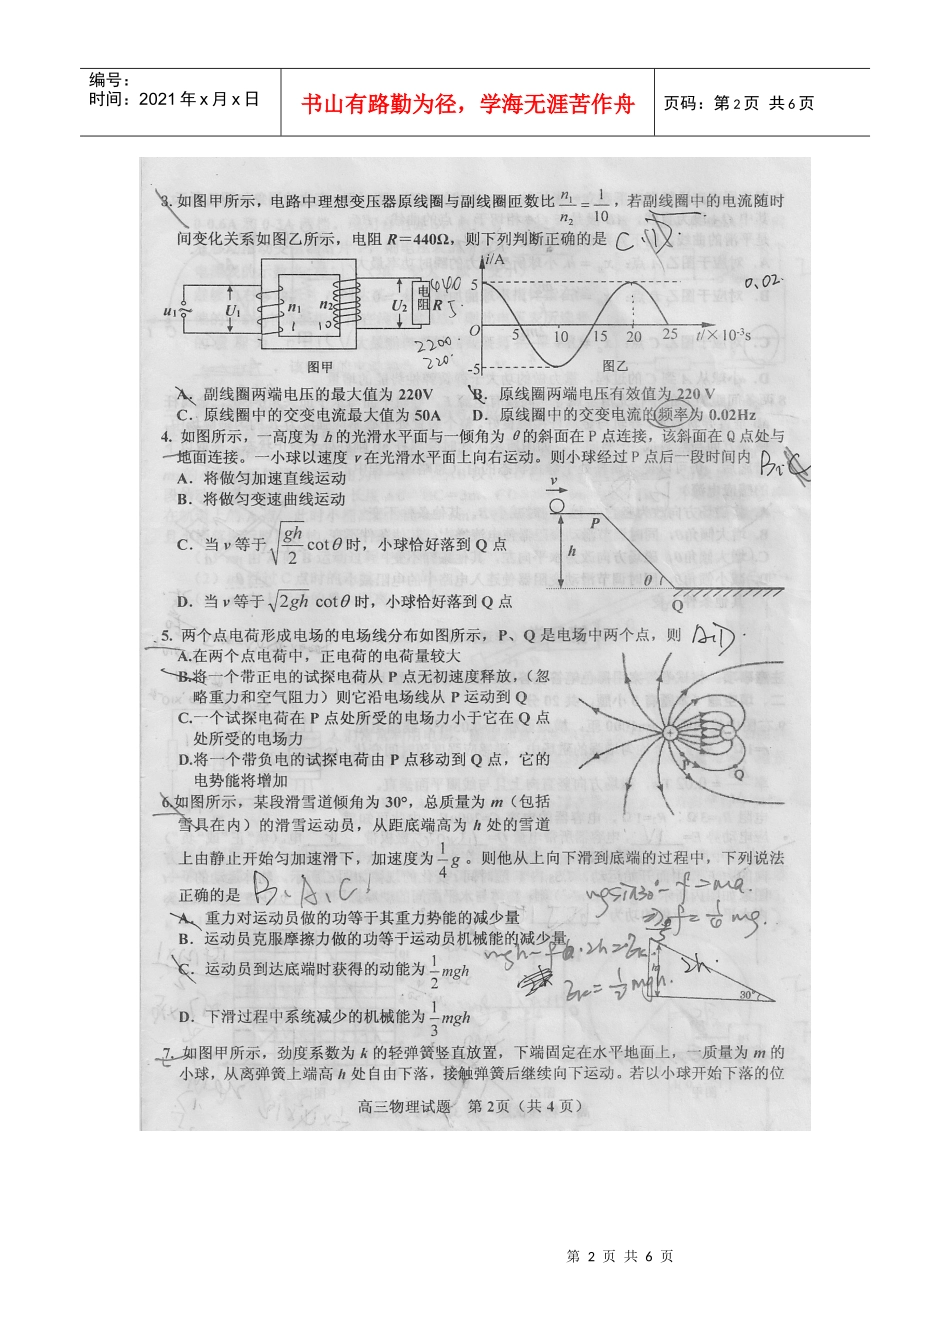 编号：
时间：2021年x月x日
书山有路勤为径，学海无涯苦作舟
页码：第2页 共6页
3. 如图甲所示，电路中理想变压器原线圈与副线圈匝数比 n₁/n₂ = 1/10，若副线圈中的电流随时
间变化关系如图乙所示，电阻 R＝440Ω，则下列判断正确的是 C、D
i/A
440
0.02
u₁~ U₁ n₁ n₂ U₂ 电阻 R
5
1 10
O 5 10 15 20 25 t/×10⁻³s
2200
220
-5
图甲
图乙
A．副线圈两端电压的最大值为 220V B．原线圈两端电压有效值为 220 V
C．原线圈中的交变电流最大值为 50A D．原线圈中的交变电流的频率为 0.02Hz
4. 如图所示，一高度为 h 的光滑水平面与一倾角为 θ 的斜面在 P 点连接，该斜面在 Q 点处与
地面连接。一小球以速度 v 在光滑水平面上向右运动。则小球经过 P 点后一段时间内
A．将做匀加速直线运动
B．将做匀变速曲线运动
v
P
h
θ
Q
C．当 v 等于 √(gh/2) cotθ 时，小球恰好落到 Q 点
D．当 v 等于 √(2gh) cotθ 时，小球恰好落到 Q 点
5. 两个点电荷形成电场的电场线分布如图所示，P、Q 是电场中两个点，则 A、D
A.在两个点电荷中，正电荷的电荷量较大
B.将一个带正电的试探电荷从 P 点无初速度释放，（忽
略重力和空气阻力）则它沿电场线从 P 运动到 Q
C.一个试探电荷在 P 点处所受的电场力小于它在 Q 点
处所受的电场力
D.将一个带负电的试探电荷由 P 点移动到 Q 点，它的
电势能将增加
P
Q
6.如图所示，某段滑雪道倾角为 30°，总质量为 m（包括
雪具在内）的滑雪运动员，从距底端高为 h 处的雪道
上由静止开始匀加速滑下，加速度为 1/4 g。则他从上向下滑到底端的过程中，下列说法
正确的是 B、A、C
mgsin30°-f=ma.
A．重力对运动员做的功等于其重力势能的减少量
B．运动员克服摩擦力做的功等于运动员机械能的减少量
C．运动员到达底端时获得的动能为 1/2 mgh
2h
Ek=1/2 mgh.
30°
D．下滑过程中系统减少的机械能为 1/3 mgh
7. 如图甲所示，劲度系数为 k 的轻弹簧竖直放置，下端固定在水平地面上，一质量为 m 的
小球，从离弹簧上端高 h 处自由下落，接触弹簧后继续向下运动。若以小球开始下落的位
高三物理试题 第 2页（共 4 页）
第 2 页 共 6 页